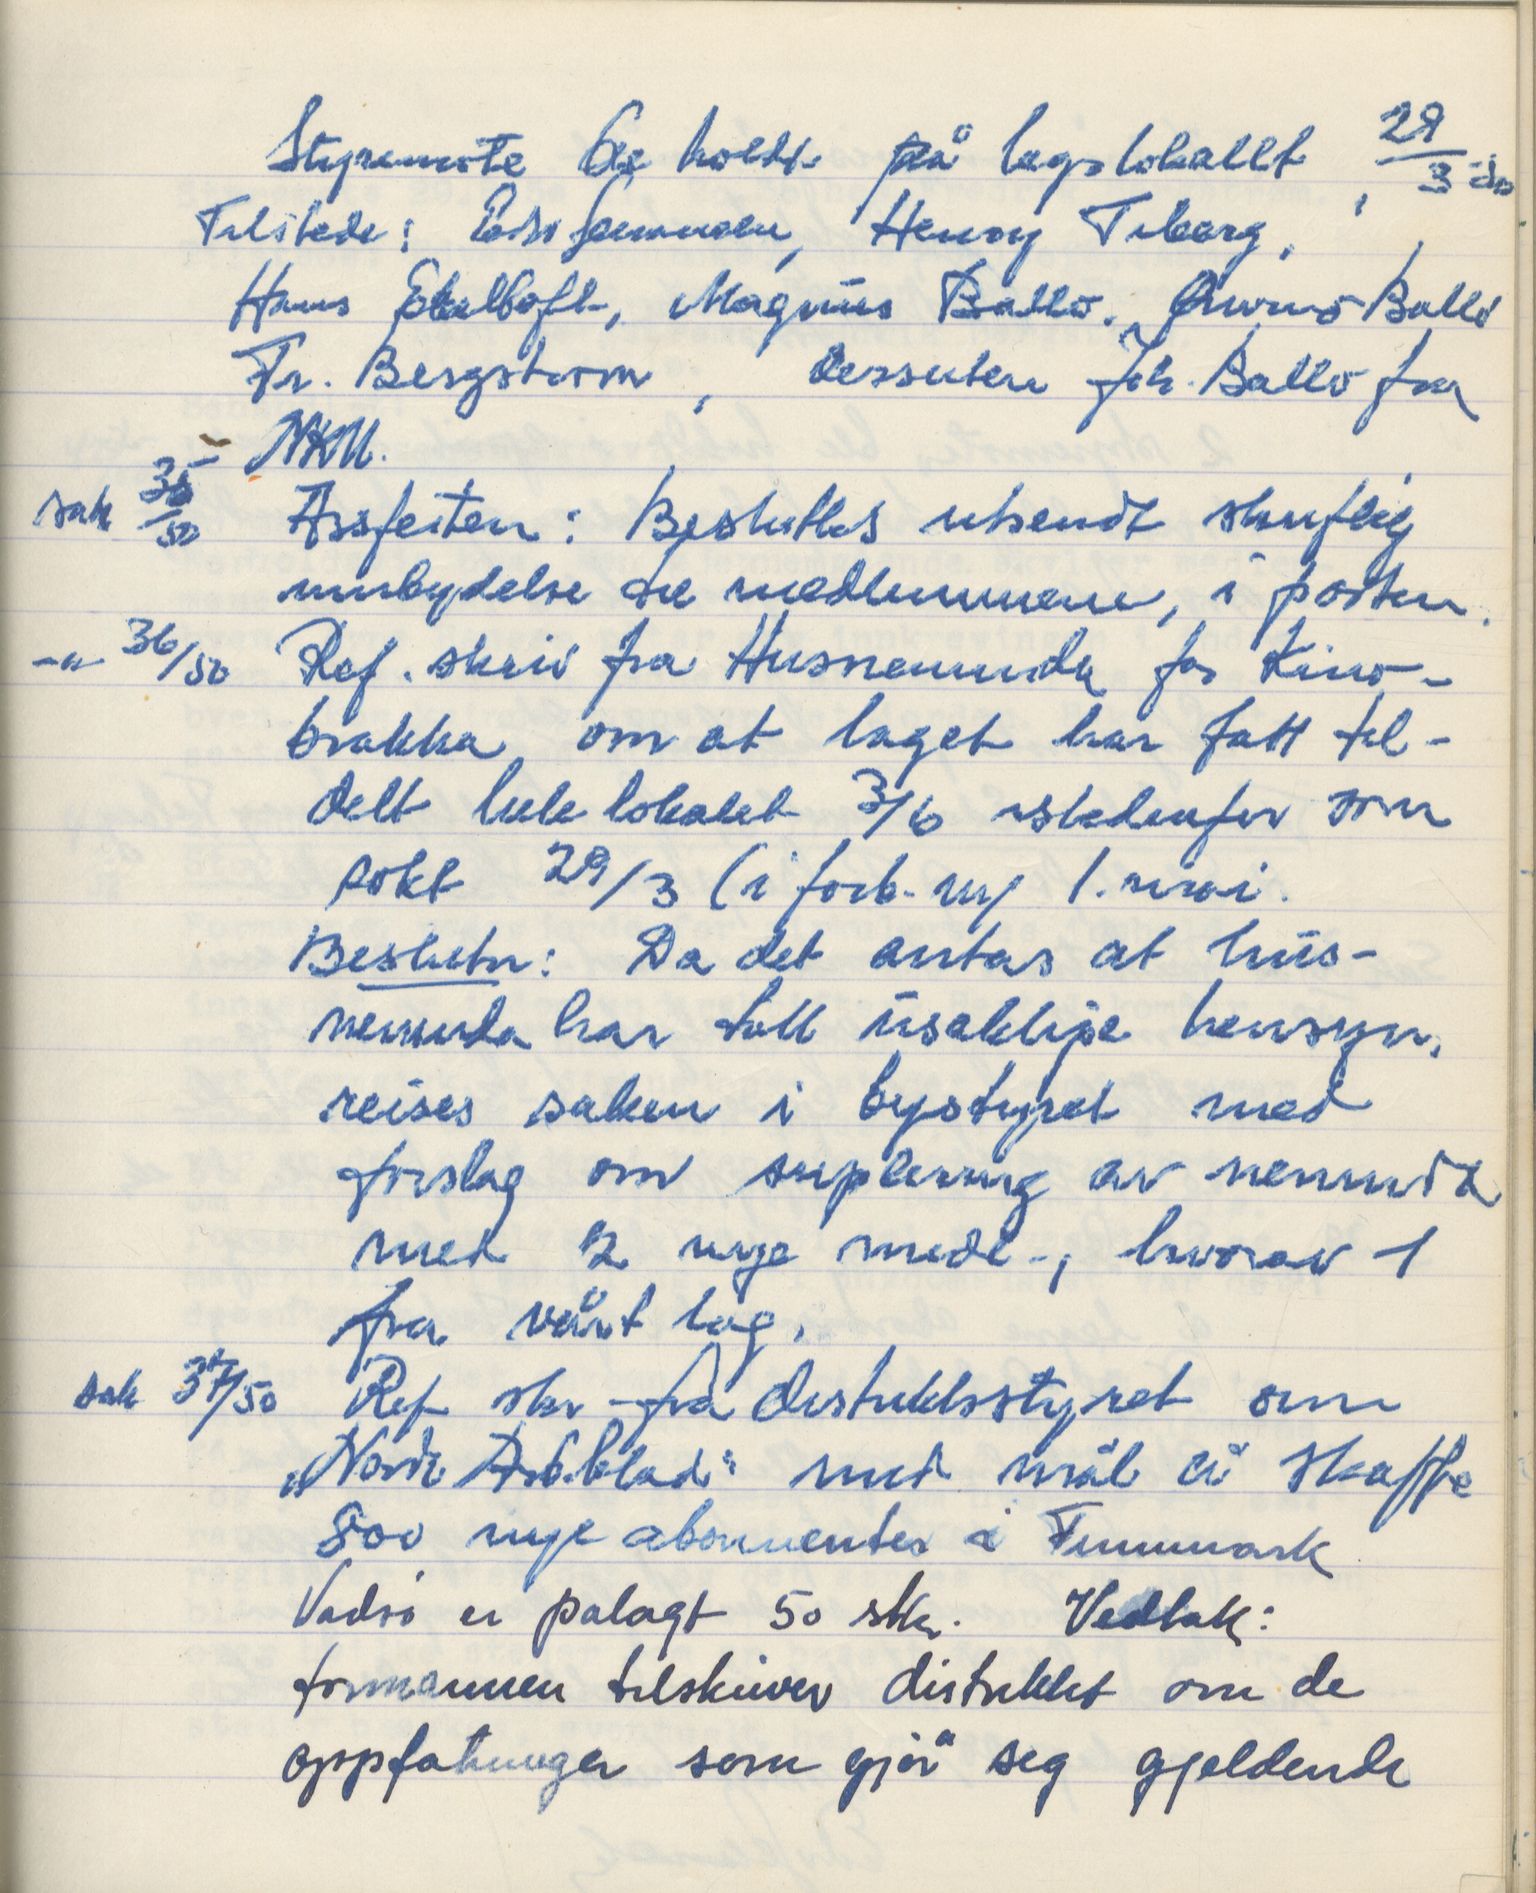 Styremøte ble holdt på lagslokallt, 29/3-50
Tilstede: Henry Tiberg,
Hans Stalloft, Magnus Ballo, Ballo
Fr. Bergstrøm, dessuten Joh. Ballo fra
NKU.
sak 35/50 Årsfesten: Besluttes utsendt skriftlig
innbydelse til medlemmene, i posten.
-"- 36/50 Ref. skriv fra Husnemnda for Kino-
brakka om at laget har fått til-
delt hele lokalet 3/6 istedenfor som
søkt 29/3 (i forb. m/ 1. mai.
Beslutn: Da det antas at hus-
nemnda har tatt usaklige hensyn,
reises saken i bystyret med
forslag om suplering av nemnda
med 2 nye medl-, hvorav 1
fra vårt lag.
sak 37/50 Ref skr fra distriktsstyret om
"Nordn Arb.blad" med mål å skaffe
800 nye abonnenter i Finnmark
Vadsø er pålagt 50 stk. Vedtak:
formannen tilskriver distriktet om de
oppfatninger som gjør seg gjeldende